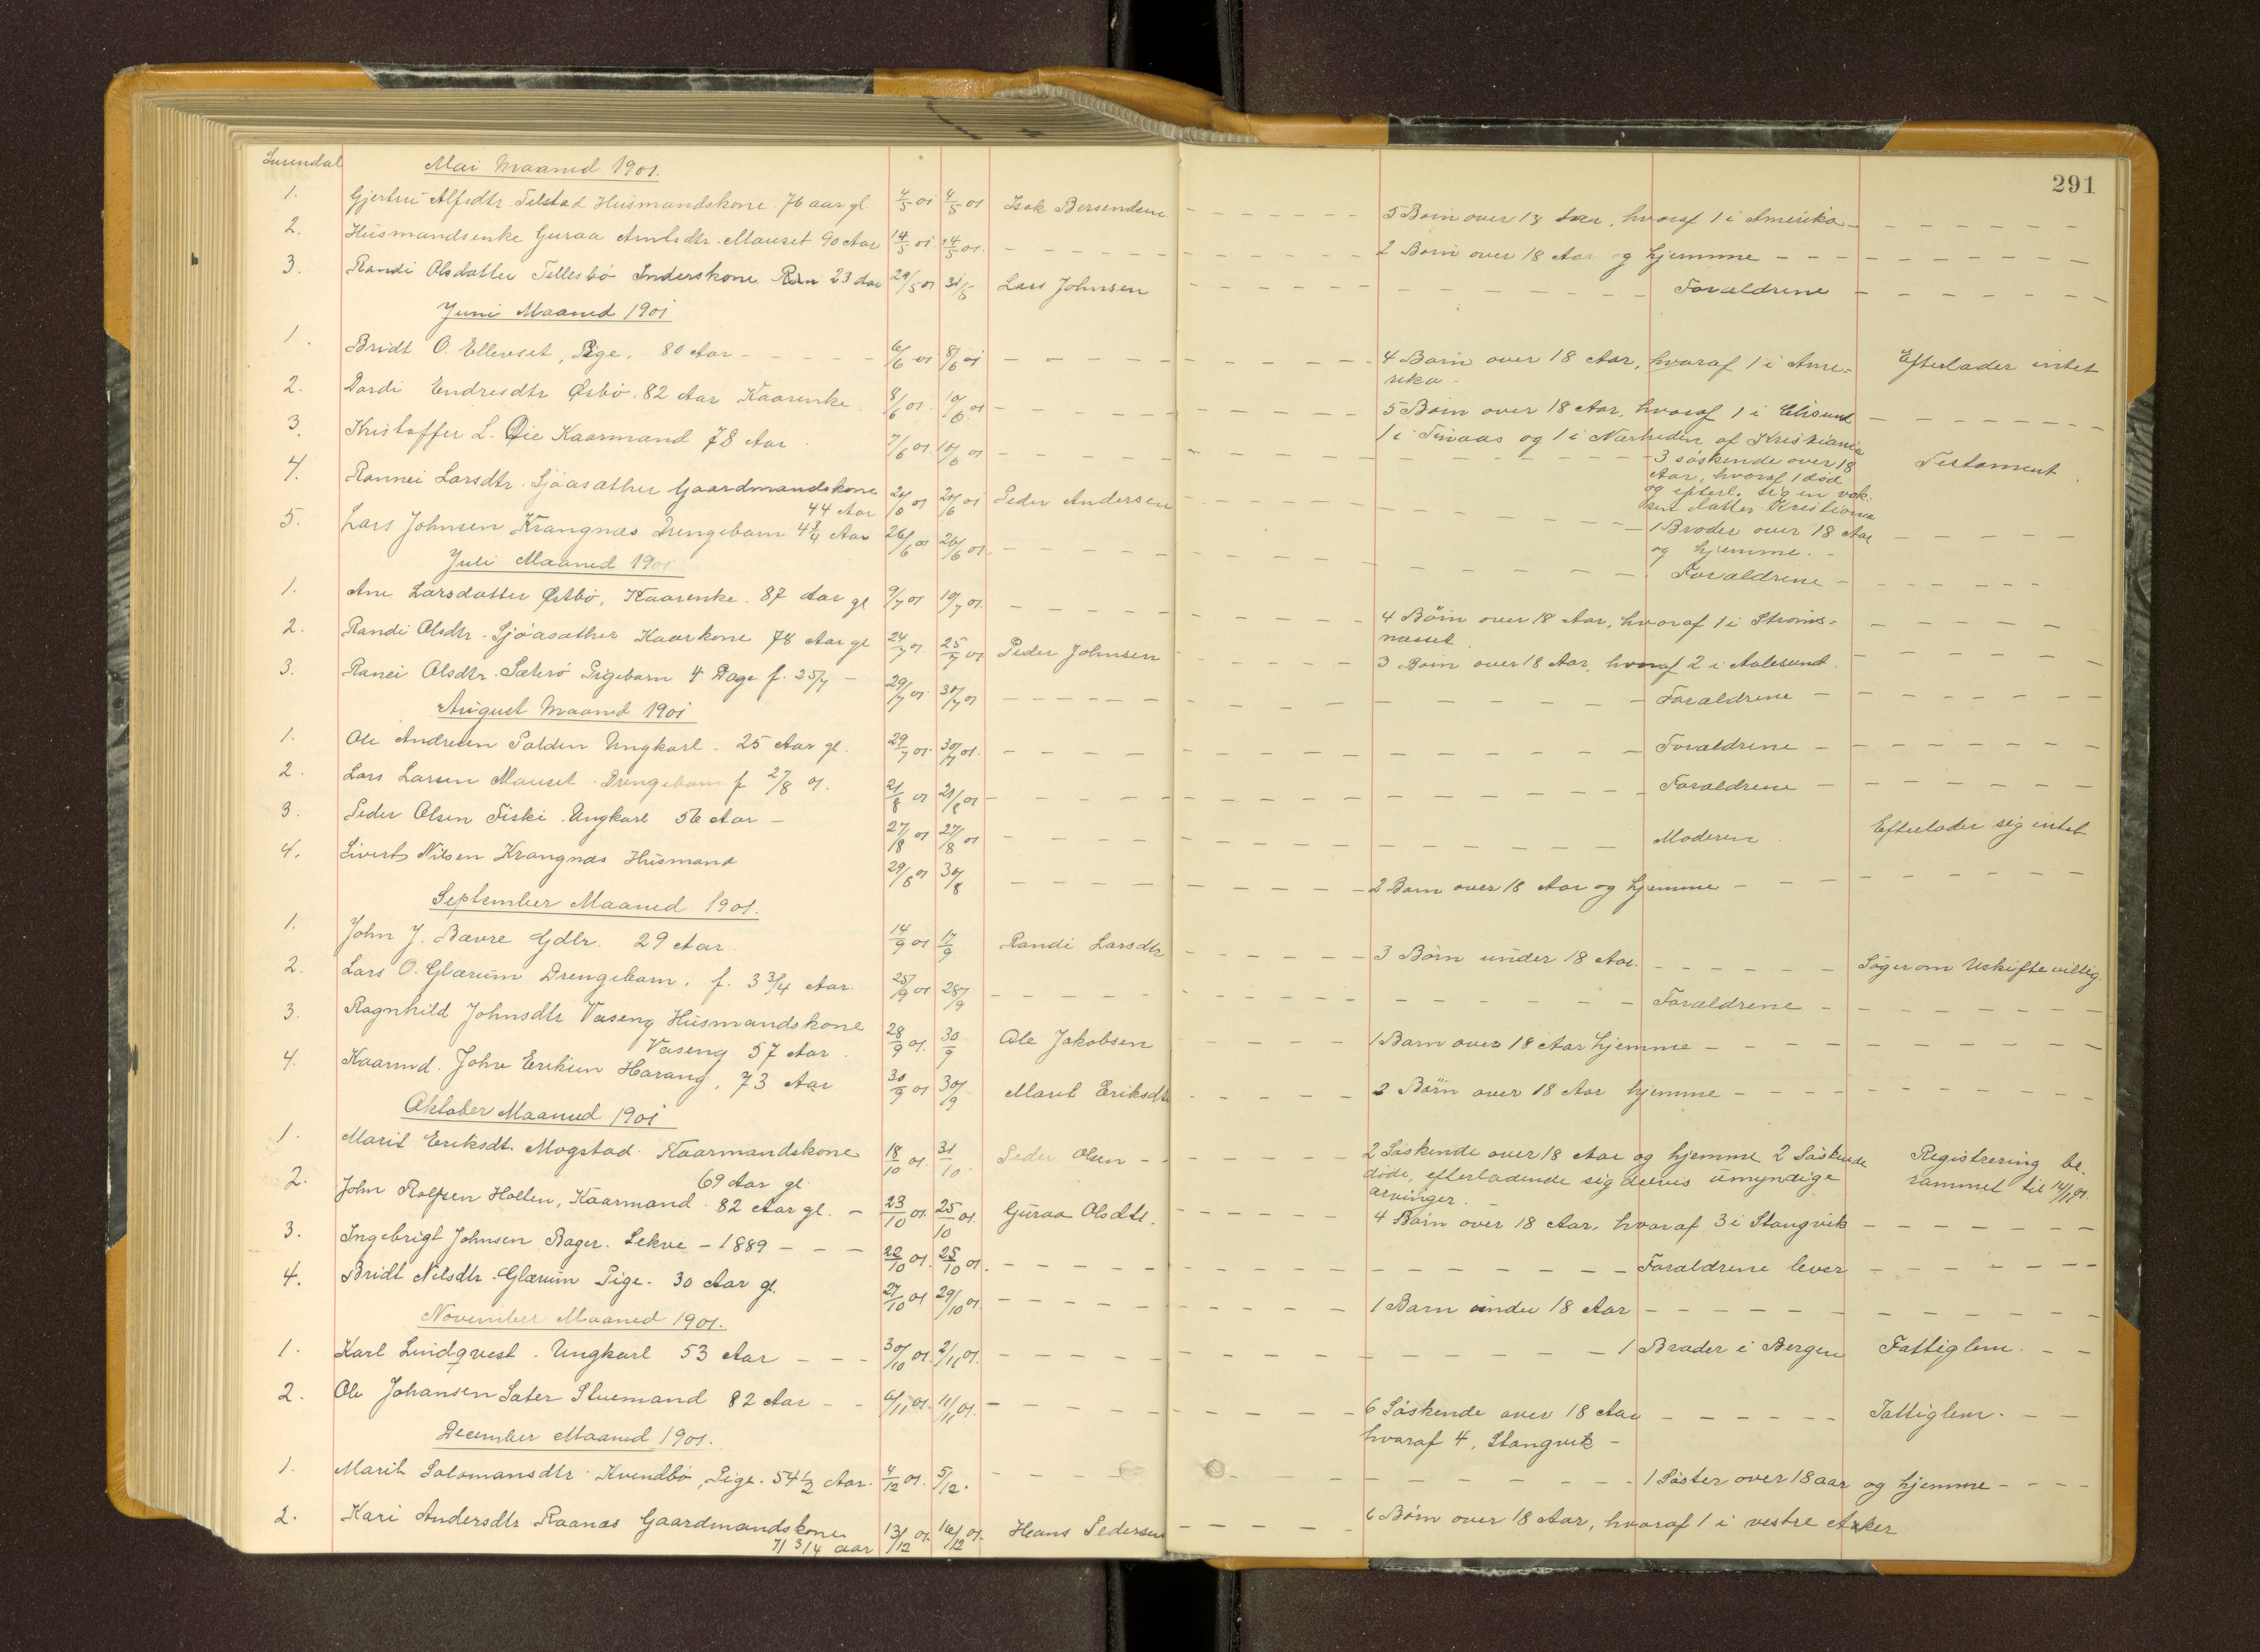 291
Surendal Mai Maaned 1901.
1. Gjertru Alfsdtr. Telstad Husmandskone 76 aar gl 4/5 01 4/5 01 Isak Bersendsen - - - 5 Børn over 18 Aar, hvoraf 1 i Amerika - - -
2. Husmandsenke Guraa Arntsdtr. Mauset 90 Aar 14/5 01 14/5 01. - - - 2 Børn over 18 Aar og hjemme - - -
3. Randi Olsdatter Tellesbø Inderskone 23 Aar 29/5 01 31/5 Lars Johnsen - - - Forældrene - - -
Juni Maaned 1901
1. Bridt O. Ellevset, Pige. 80 Aar - - - 6/6 01 8/6 01 - - - 4 Børn over 18 Aar, hvoraf 1 i Ame= Efterlader intet
rika -
2. Dordi Endresdtr Østbø. 82 Aar Kaarenke. 8/6 01. 10/6 01 - - - 5 Børn over 18 Aar, hvoraf 1 i - - -
1 i og 1 i Nærheden af Kristiania
3. Kristoffer L. Øie Kaarmand 78 Aar. 7/6 01. 10/6 01 - - - 3 søskende over 18 Testament.
Aar, hvoraf 1 død
og efterl. sig en vok.
sen datter Kristiania
4. Rannei Larsdtr. Sjöasæther Gaardmandskone 24/6 01 24/6 01 Peder Andersen - - - 1 Broder over 18 Aar - - -
44 Aar og hjemme. -
5. Lars Johnsen Krangnæs Drengebarn 4 3/4 Aar 26/6 01 26/6 01. - - - Forældrene - - -
Juli Maaned 1901
1. Ane Larsdatter Østbø, Kaarenke. 87 Aar gl 9/7 01 10/7 01. - - - 4 Børn over 18 Aar, hvoraf 1 i Strøms= - - -
næsset
2. Randi Olsdtr. Sjöasæther Kaarkone 78 Aar gl 24/7 01. 25/7 01 Peder Johnsen - - - 3 Børn over 18 Aar, hvoraf 2 i Aalesund.
3. Ranei Olsdtr. Sæterø Pigebarn 4 Dage f. 25/7 - 29/7 01. 30/7 01 - - - Forældrene - - -
August Maaned 1901
1. Ole Andresen Polden Ungkarl - 25 Aar gl. 29/7 01. 30/7 01. - - - Forældrene - - -
2. Lars Larsen Mauset. Drengebarn f 27/8 01. 21/8 01 21/8 01 - - - Forældrene - - -
3. Peder Olsen Fiske. Ungkarl 56 Aar - 27/8 01 27/8 01 - - - Moderen. Efterlader sig intet
4. Sivert Nilsen Krangnæs Husmand 29/8 01 30/8 - - - 2 Barn over 18 Aar og hjemme - - -
September Maaned 1901.
1. John J. Bævre Gdbr. 29 Aar. 14/9 01 17/9 Randi Larsdtr - - - 3 Børn under 18 Aar. - - - Søger om Uskiftevillig.
2. Lars O. Glærum Drengebarn. f. 3 3/4 Aar. 25/9 01 28/9 - - - Forældrene - - -
3. Ragnhild Johnsdtr Vaseng Husmandskone 28/9 01. 30/9 Ole Jakobsen - - - 1 Barn over 18 Aar hjemme - - -
Vaseng 57 Aar.
4. Kaarmd. John Eriksen Harang, 73 Aar 30/9 01 30/9 Marit Eriksdtr - - - 2 Børn over 18 Aar hjemme - - -
Oktober Maaned 1901
1. Marit Eriksdt. Mogstad. Kaarmandskone 18/10 01. 31/10. Peder Olsen - - - 2 Søskende over 18 Aar og hjemme 2 Søskende Registrering be.
69 Aar gl. døde, efterladende sig delvis umyndige rammet til 14/11 01.
arvinger.
2. John Rolfsen Hollen, Kaarmand. 82 Aar gl. - 23/10 01. 25/10 01. Guraa Olsdtr. - - - 4 Børn over 18 Aar, hvoraf 3 i Stangvik - - -
3. Ingebrigt Johnsen Bager. Lekve - 1889 - - - 22/10 01. 25/10 01. - - - Forældrene lever - - -
4. Bridt Nilsdtr. Glærum Pige. 30 Aar gl. 27/10 01 29/10 01. - - - 1 Barn under 18 Aar - - -
November Maaned 1901.
1. Karl Lindqvest - Ungkarl 53 Aar - - - 30/10 01. 2/11 01. - - - 1 Broder i Bergen Fattiglem. - -
2. Ole Johansen Sæter Stuemand 82 Aar - - 6/11 01. 11/11 01. - - - 6 Søskende over 18 Aar - - - Fattiglem. - -
hvoraf 4, Stangvik -
December Maaned 1901.
1. Marit Salamonsdtr. Kvendbø, Pige. 54 1/2 Aar. 4/12 01. 5/12. - - - 1 Søster over 18 aar og hjemme - - -
2. Kari Andersdtr. Raanæs Gaardmandskone 13/12 01. 16/12 01. Hans Pedersen - - - 6 Børn over 18 Aar, hvoraf 1 i vestre Aker
71 3/4 aar